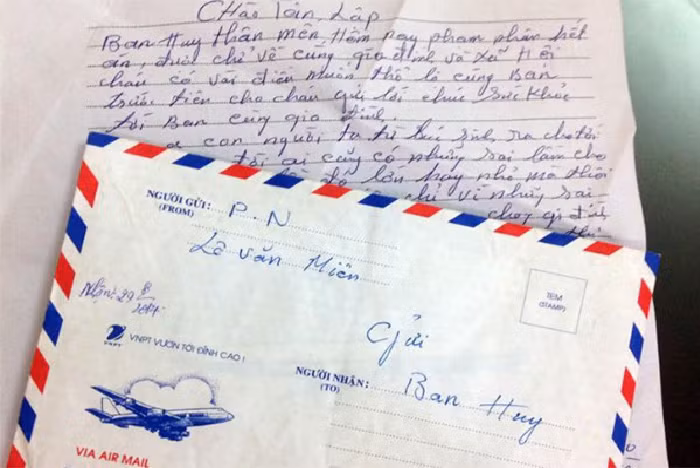 CHào Tân Lập
Ban Huy thân mến, Hôm nay phạm nhân hết
án, được chỉ về cùng gia đình và xã Hội
cháu có vài điều muốn thổ lộ cùng Ban
trước tiên cho cháu gửi lời chúc sức khỏe
tới Ban cùng gia đình.
con người ta từ lúc sinh ra cho tới
ai cũng có những sai lầm cho
lớn hay nhỏ mà thôi
chỉ vì những sai
NGƯỜI GỬI: P.N
(FROM)
Lê văn Miên
Nhận: 29/8/2014
TEM
(STAMP)
VNPT
VNPT VƯƠN TỚI ĐỈNH CAO !
Gửi
NGƯỜI NHẬN: Ban Huy
(TO)
VIA AIR MAIL